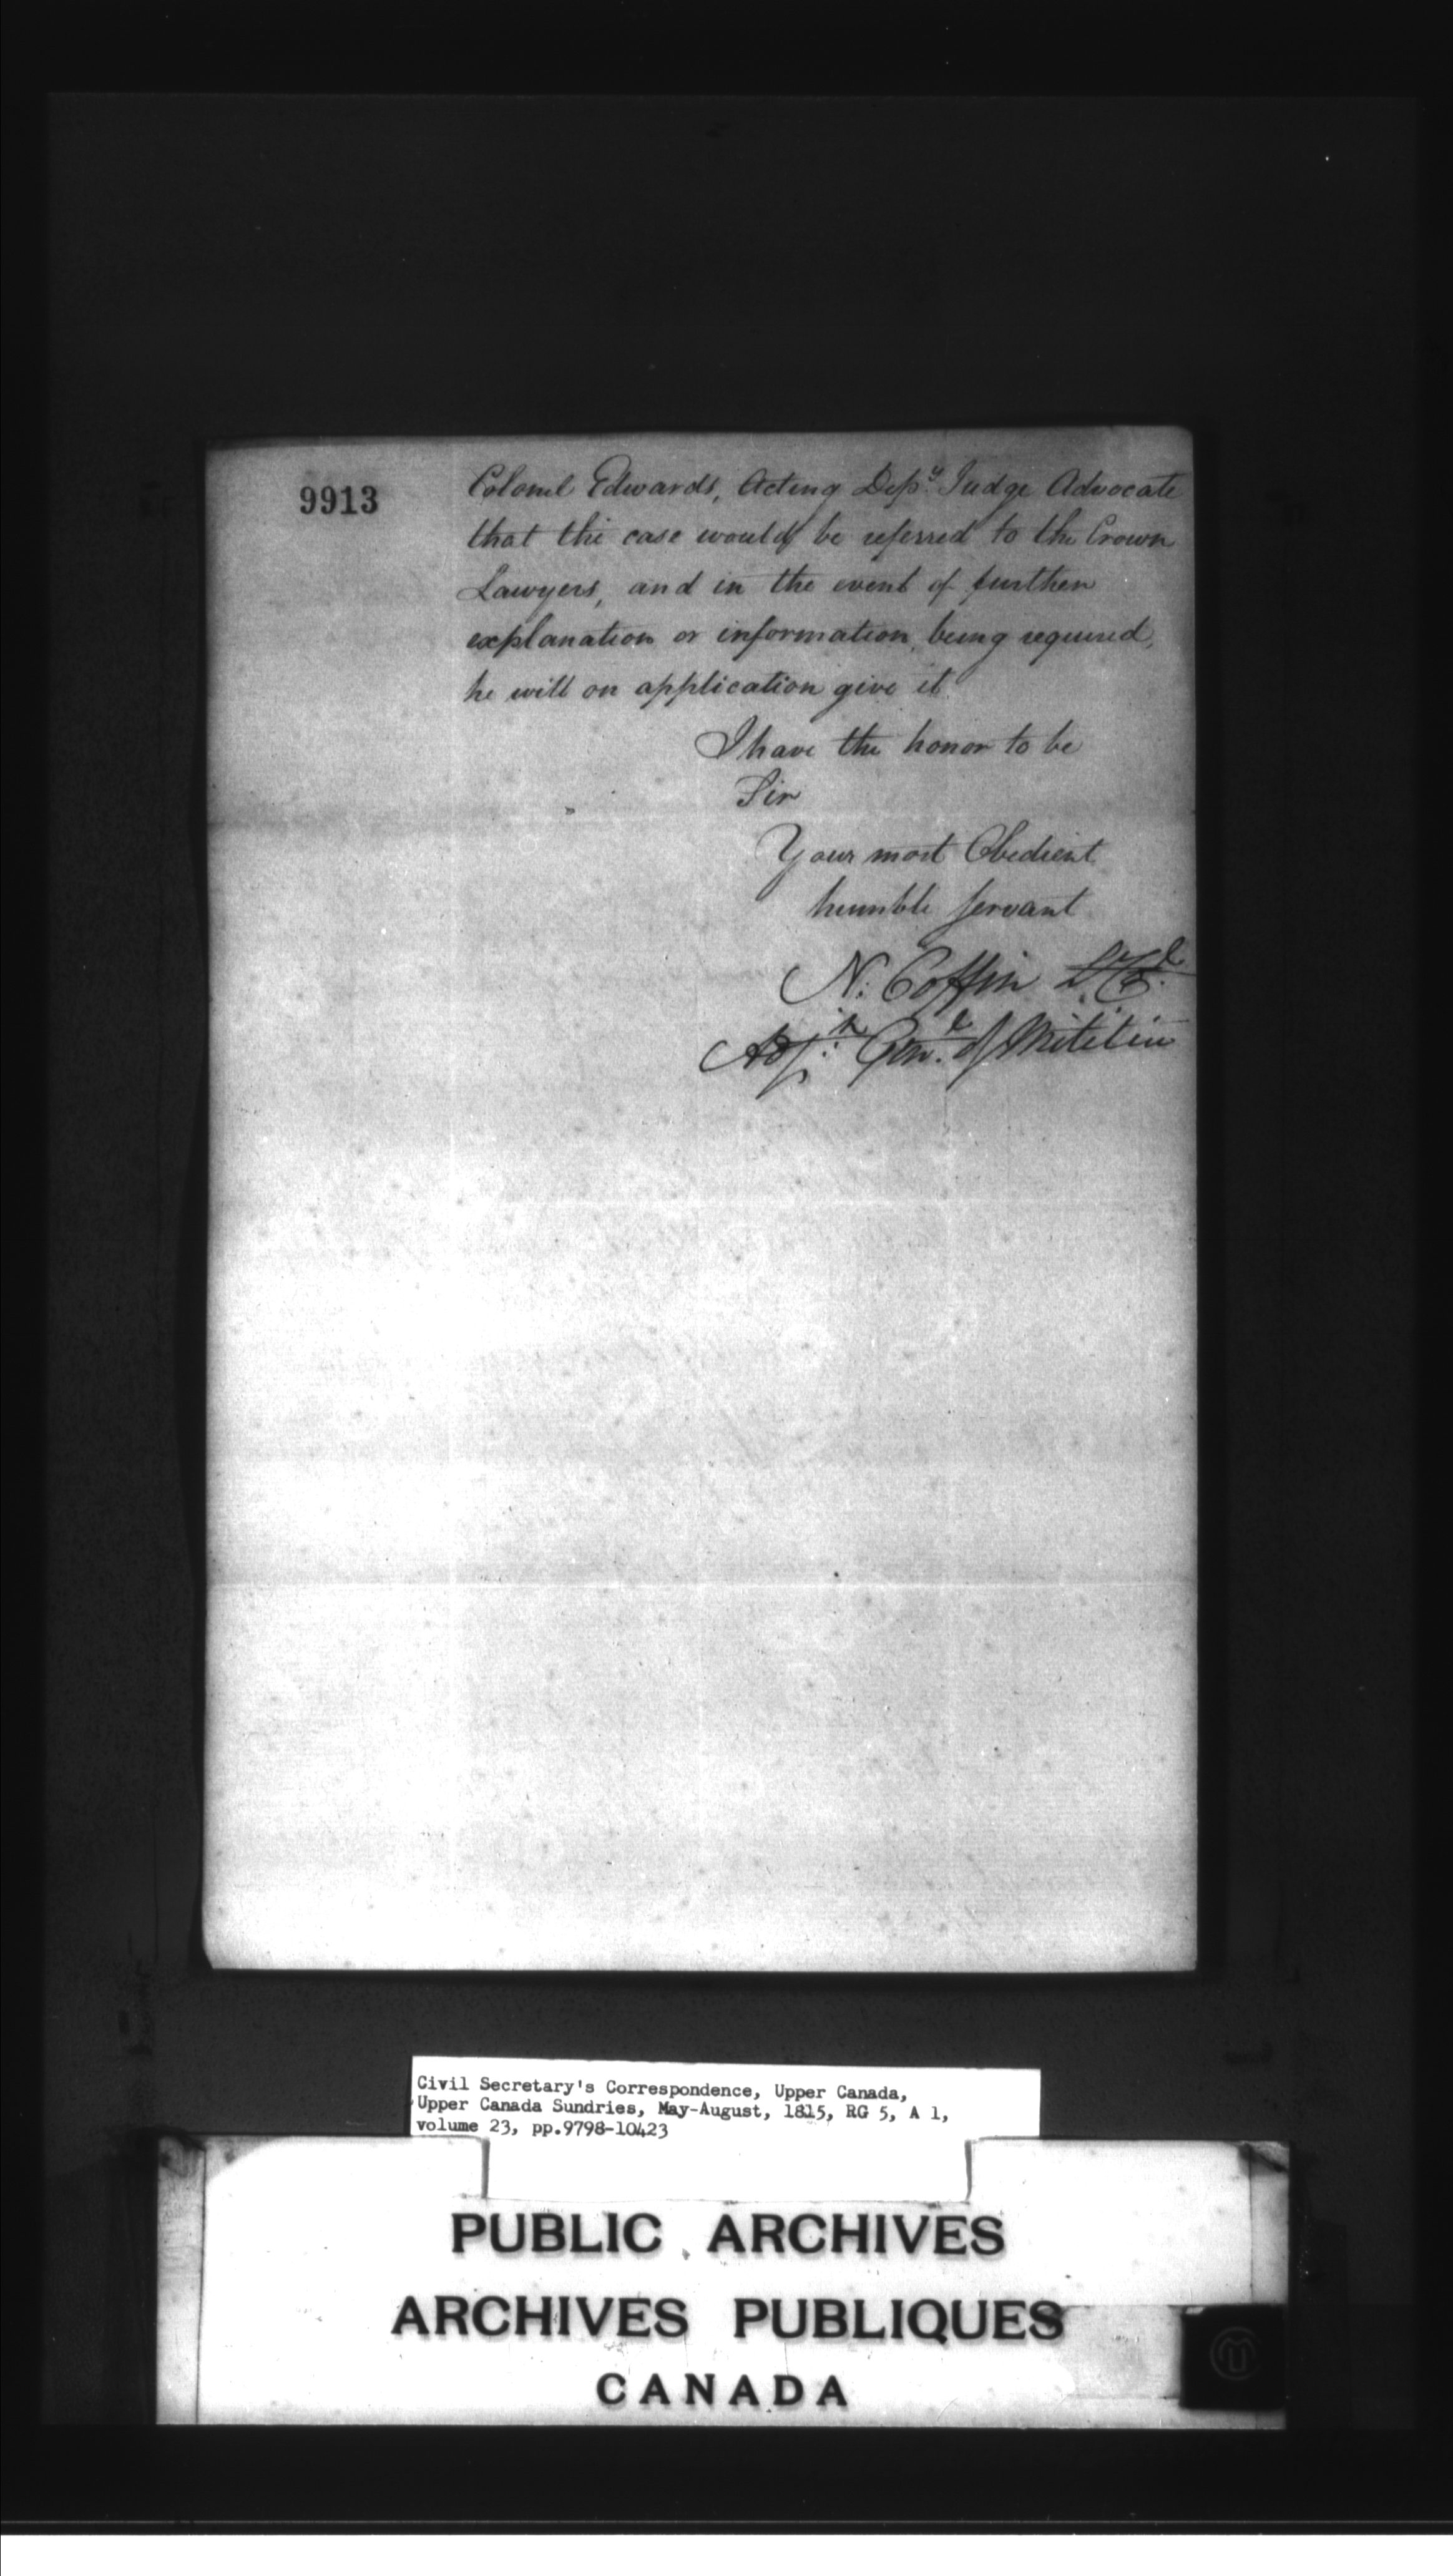 9913
Colonel Edwards, Acting Depy. Judge Advocate
that the case would be referred to the Crown
Lawyers, and in the event of further
explanation or information, being required,
he will on application give it.
I have the honor to be
Sir
Your most Obedient
humble servant
N. Coffin Lt Col.
Adjt. Genl. of Militia
Civil Secretary's Correspondence, Upper Canada,
Upper Canada Sundries, May-August, 1815, RG 5, A 1,
volume 23, pp.9798-10423
PUBLIC ARCHIVES
ARCHIVES PUBLIQUES
CANADA